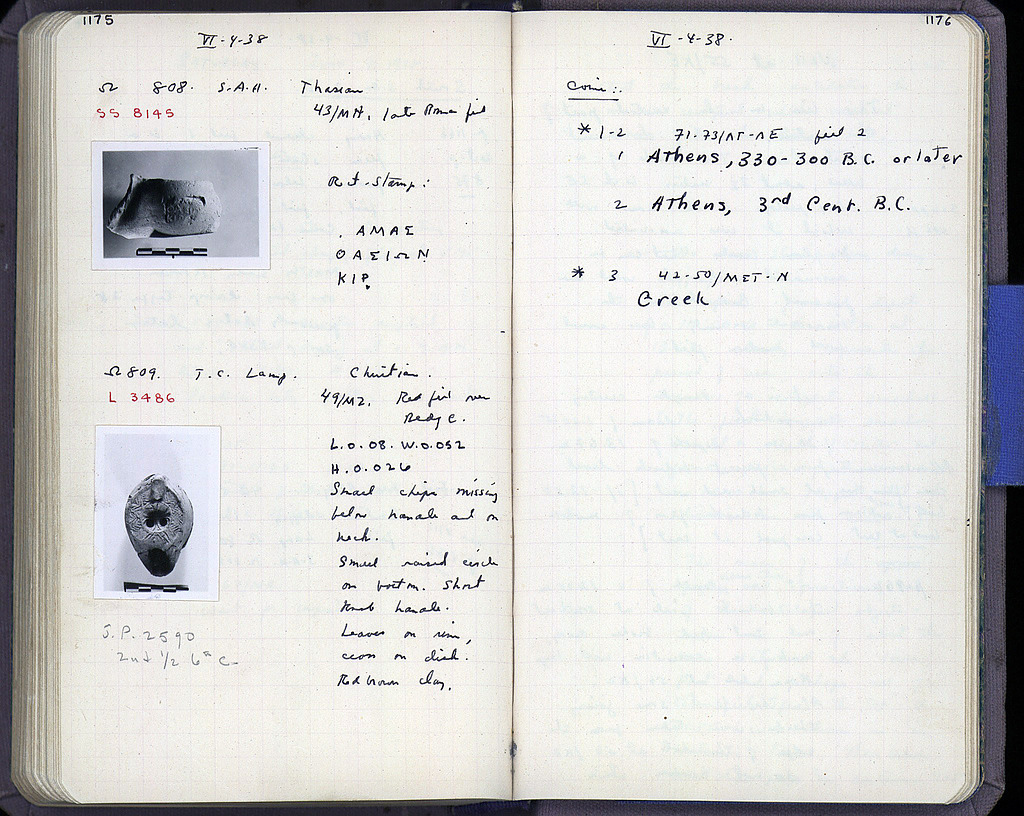 1175
VI-4-38
Ω 808. S.A.H. Thasian
SS 8145
43/MH, late Roman fill
Ret. Stamp:
. ΑΜΑΣ
ΘΑΣΙΩΝ
ΚΙΡ
Ω 809. T.C. Lamp. Christian.
L 3486
49/MZ, Red fill over
Bedg E.
L.0.08. W.0.052
H.0.026
Small chips missing
below handle and on
neck.
Small raised circle
on bottom. Short
knob handle.
Leaves on rim,
cross on disk.
Red brown clay.
J.P. 2590
2nd 1/2 6th C
1176
VI-4-38.
Coins:
* 1-2 71-73/ΛΓ-ΛΕ fill 2
1 Athens, 330-300 B.C. or later
2 Athens, 3rd Cent. B.C.
* 3 42-50/ΜΣΤ-Ν
Greek